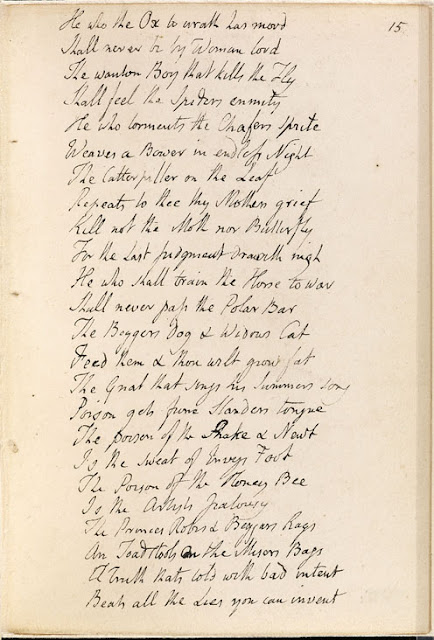 15
He who the Ox to wrath has movd
Shall never be by Woman lovd
The wanton Boy that kills the Fly
Shall feel the Spiders enmity
He who torments the Chafers Sprite
Weaves a Bower in endless Night
The Catterpiller on the Leaf
Repeats to thee thy Mothers grief
Kill not the Moth nor Butterfly
For the Last Judgment draweth nigh
He who shall train the Horse to war
Shall never pass the Polar Bar
The Beggers Dog & Widows Cat
Feed them & thou wilt grow fat
The Gnat that sings his Summers Song
Poison gets from Slanders tongue
The poison of the Snake & Newt
Is the sweat of Envys Foot
The Poison of the Honey Bee
Is the Artists Jealousy
The Princes Robes & Beggars Rags
Are Toadstools on the Misers Bags
A Truth thats told with bad intent
Beats all the Lies you can invent